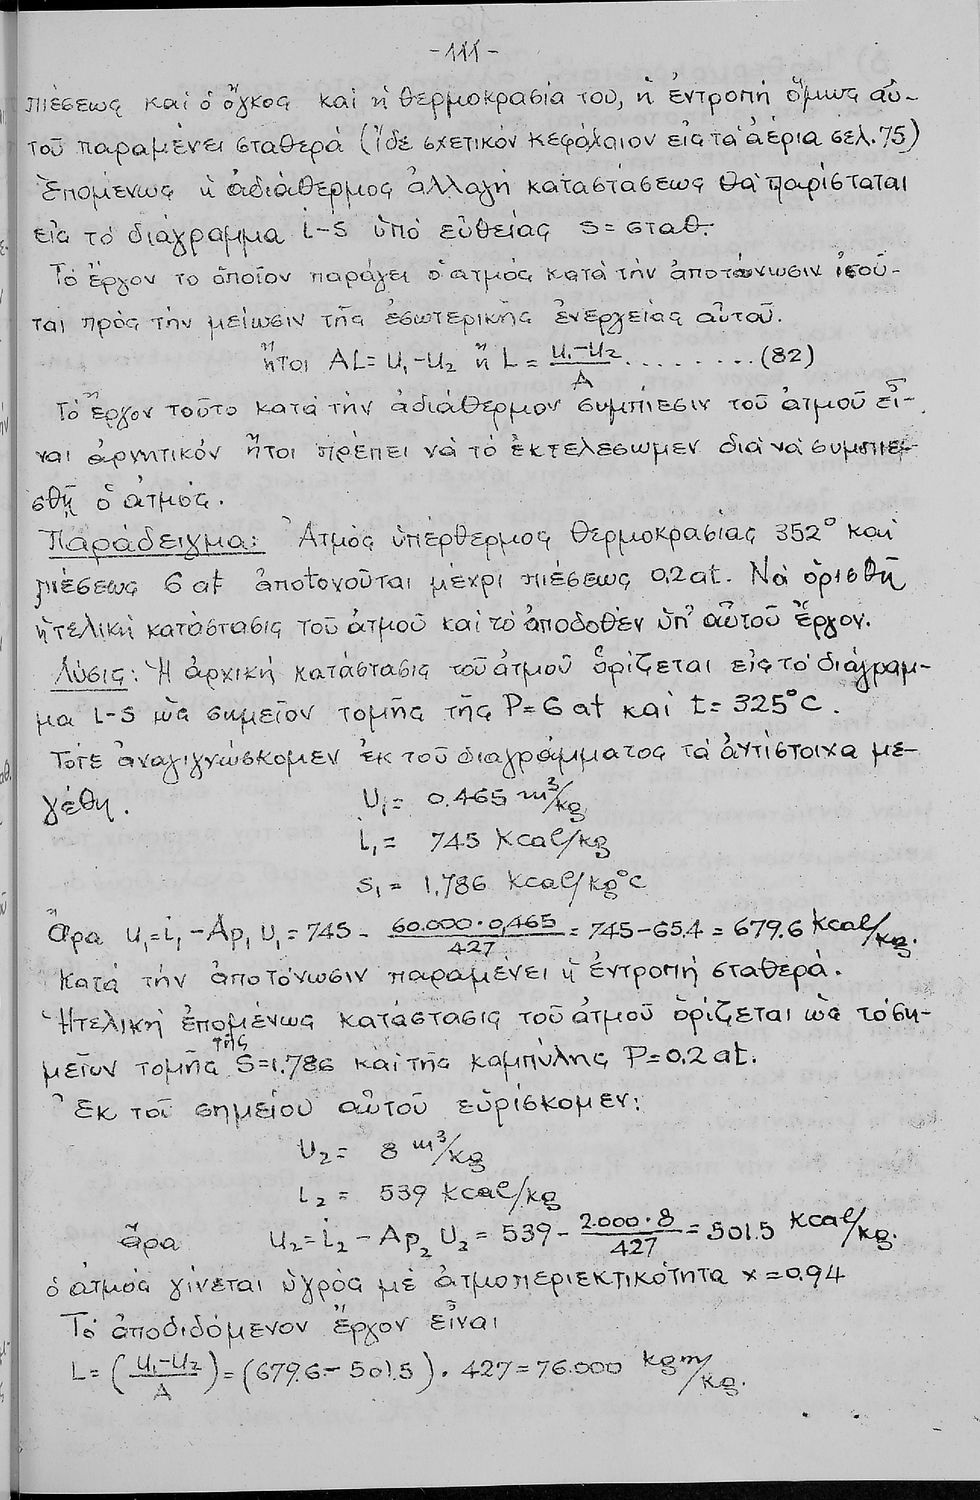 -111-
πιέσεως καί ὁ ὄγκος καί ἡ θερμοκρασία του, ἡ ἐντροπή ὅμως αὐ-
τοῦ παραμένει σταθερά (ἴδε σχετικόν κεφάλαιον εἰς τά ἀέρια σελ. 75)
Ἑπομένως ἡ ἀδιάθερμος ἀλλαγή καταστάσεως θά παρίσταται
εἰς τό διάγραμμα i-S ὑπό εὐθείας S= σταθ.
Τό ἔργον το ὁποῖον παράγει ὁ ἀτμός κατά τήν ἀποτόνωσιν ἰσοῦ-
ται πρός τήν μείωσιν τῆς ἐσωτερικῆς ἐνεργείας αὐτοῦ.
ἤτοι AL= U₁-U₂ ἤ L = U₁-U₂/A ......... (82)
Τό ἔργον τοῦτο κατά τήν ἀδιάθερμον συμπίεσιν τοῦ ἀτμοῦ εἶ-
ναι ἀρνητικόν ἤτοι πρέπει νά τό ἐκτελέσωμεν διά νά συμπιε-
σθῇ ὁ ἀτμός.
Παράδειγμα: Ἀτμός ὑπέρθερμος θερμοκρασίας 352° καί
πιέσεως 6 at ἀποτονοῦται μέχρι πιέσεως 0.2 at. Νά ὁρισθῇ
ἡ τελική κατάστασις τοῦ ἀτμοῦ καί τό ἀποδοθέν ὑπ' αὐτοῦ ἔργον.
Λύσις: Ἡ ἀρχική κατάστασις τοῦ ἀτμοῦ ὁρίζεται εἰς τό διάγραμ-
μα i-S ὡς σημεῖον τομῆς τῆς P=6 at καί t= 325°C.
Τότε ἀναγιγνώσκομεν ἐκ τοῦ διαγράμματος τά ἀντίστοιχα με-
γέθη. U₁= 0.465 m³/kg
i₁= 745 Kcal/kg
S₁= 1.786 Kcal/kg°C
Ἄρα U₁=i₁-Ap₁U₁=745 - 60.000·0,465/427 = 745-65.4 = 679.6 Kcal/kg.
Κατά τήν ἀποτόνωσιν παραμένει ἡ ἐντροπή σταθερά.
Ἡ τελική ἐπομένως κατάστασις τοῦ ἀτμοῦ ὁρίζεται ὡς τό ση-
μεῖον τομῆς τῆς S=1.786 καί τῆς καμπύλης P=0.2 at.
Ἐκ τοῦ σημείου αὐτοῦ εὑρίσκομεν:
U₂= 8 m³/kg
i₂ = 539 kcal/kg
ἄρα U₂=i₂-Ap₂U₂= 539- 2.000·8/427 = 501.5 kcal/kg.
ὁ ἀτμός γίνεται ὑγρός μέ ἀτμοπεριεκτικότητα x=0.94
Τό ἀποδιδόμενον ἔργον εἶναι
L= (U₁-U₂/A) = (679.6-501.5) . 427=76.000 kgm/kg.